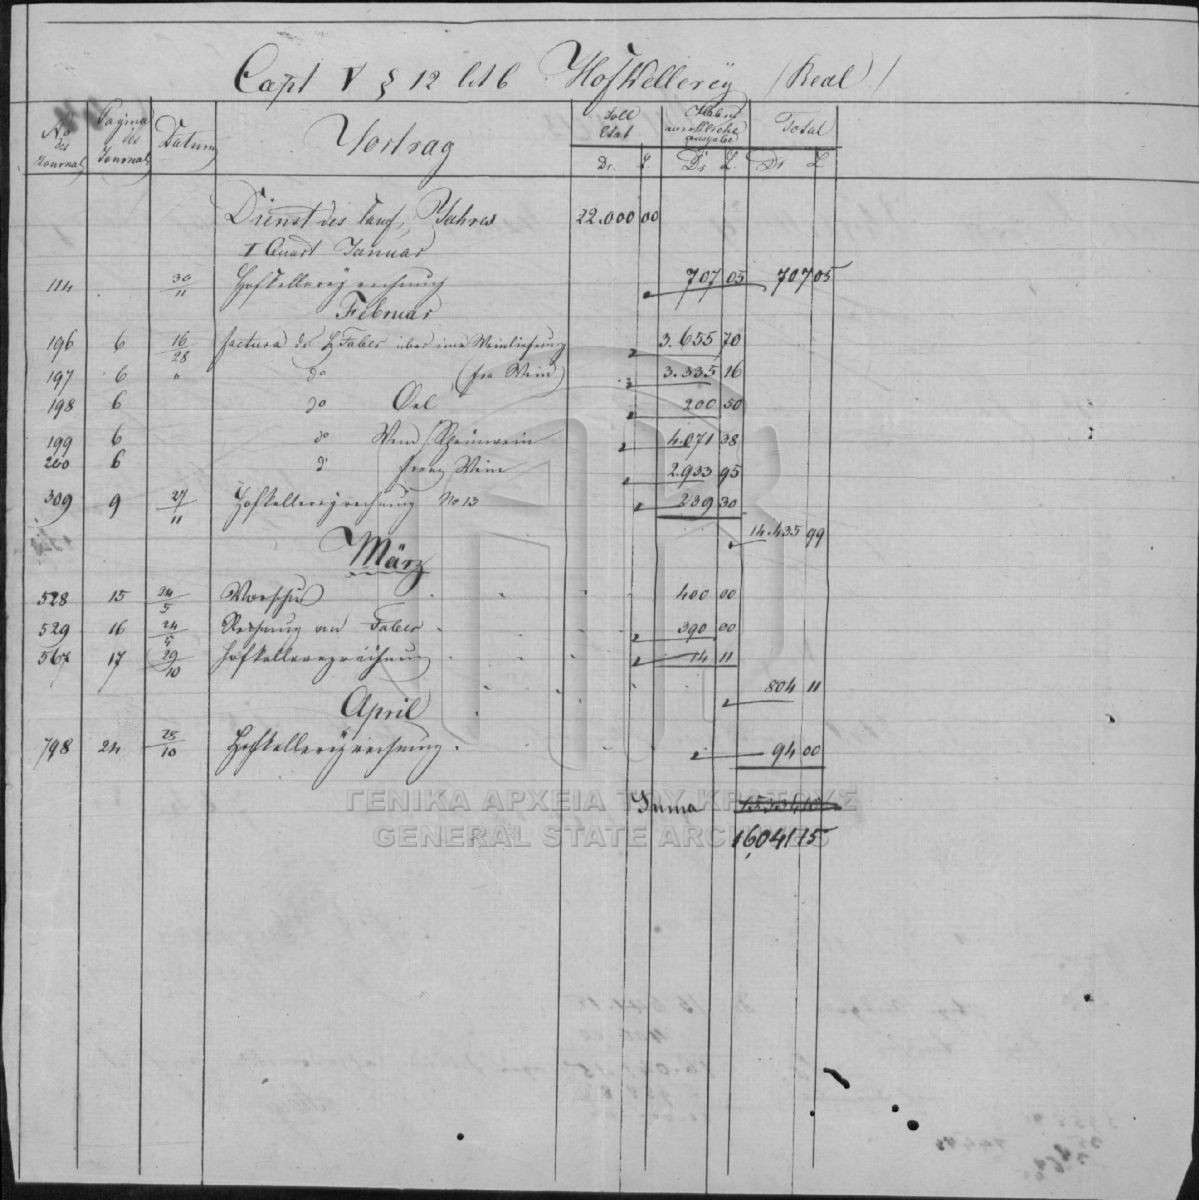 Capt V § 12 lit b Hofkellerey (Real)
No des Journals Pagina des Journals Datum Vortrag Soll Etat Haben wirkliche Ausgabe Total
Dr. L. Dr L. Dr L
Dienst des lauf. Jahres 22.000 00
I Quart Januar
114 30/11 Hofkellerey rechnung 707 05 707 05
Februar
196 6 16/28 factura des H Faber über eine Weinlieferung 3.655 70
197 6 " do (frz Wein) 3.335 16
198 6 do Oel 200 50
199 6 do Wein /Rheinwein 4.071 38
200 6 do franz Wein 2.933 95
309 9 27/11 Hofkellereyrechnung No 13 239 30
14.435 99
März
528 15 24/5 Vorschuß 400 00
529 16 24/5 Rechnung von Faber 390 00
567 17 29/10 Hofkellereyrechnung 14 11
804 11
April
798 24 25/10 Hofkellereyrechnung 94 00
Suma
16,041 15
ΓΕΝΙΚΑ ΑΡΧΕΙΑ ΤΟΥ ΚΡΑΤΟΥΣ
GENERAL STATE ARCHIVES